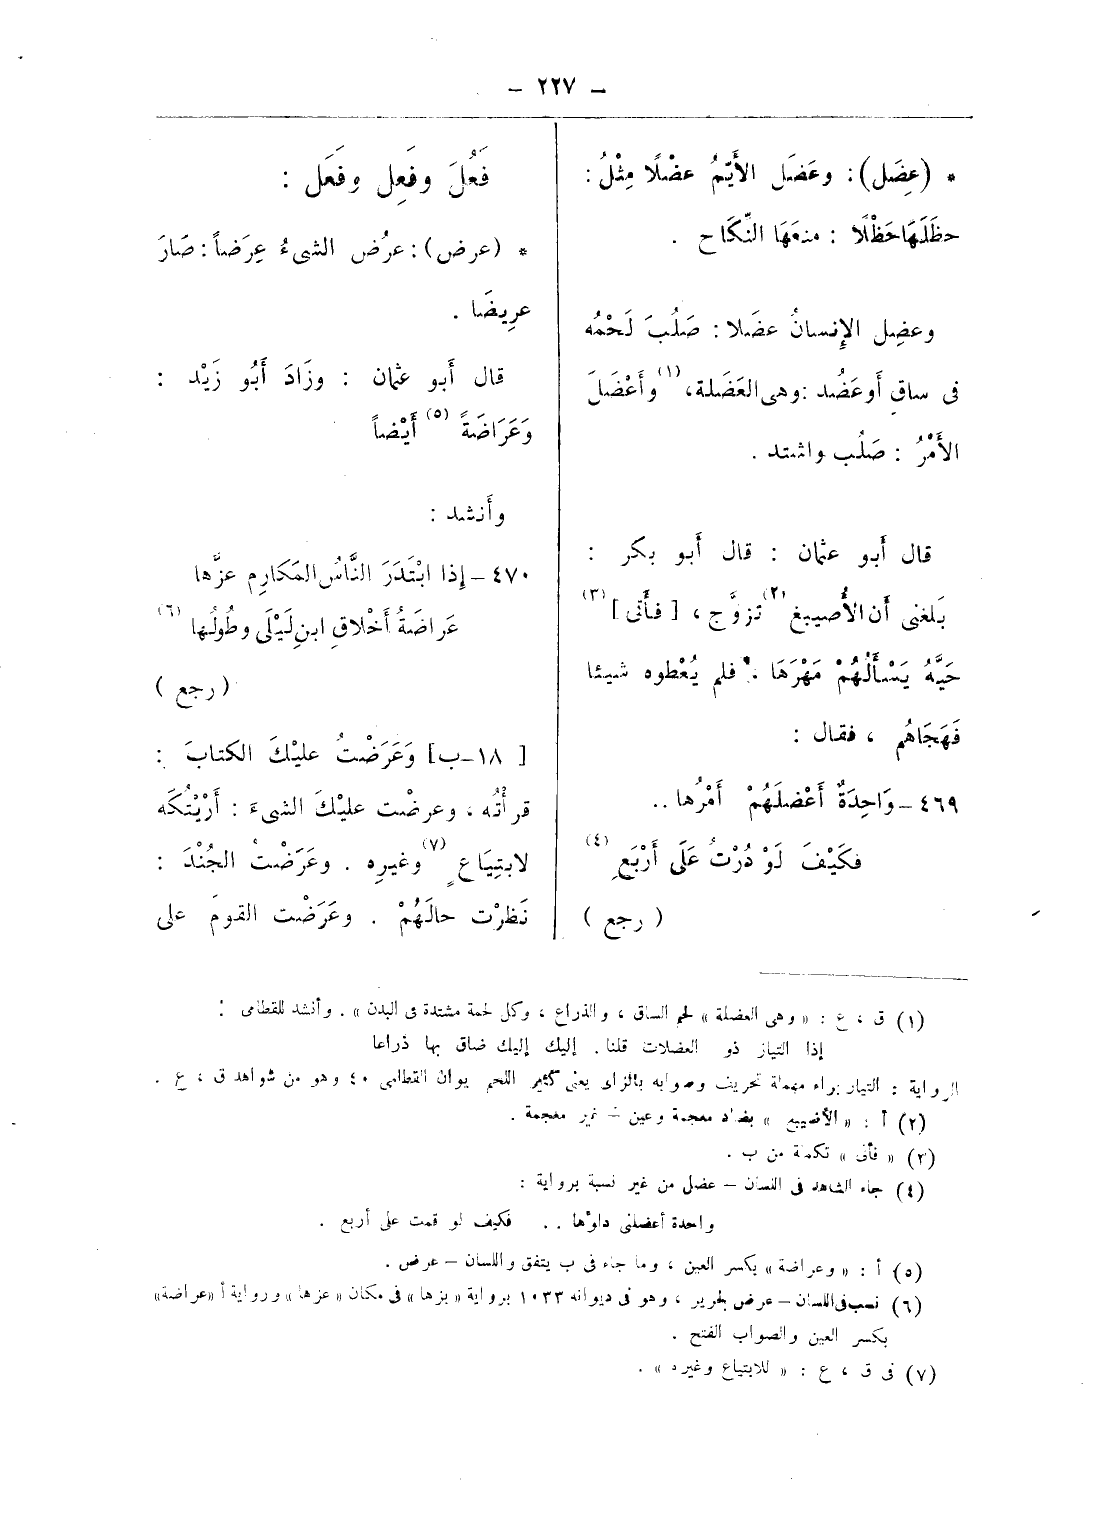 – ٢٢٧ –
* (عضل): وعَضَل الأَيّمُ عضْلًا مِثْلُ:
حظَلَهَا حَظْلًا : منعَهَا النِّكَاح .
وعضِل الإِنسانُ عضَلا: صَلُبَ لَحْمُه
فى ساقٍ أو عَضُد: وهى العَضَلة،(١) وأَعْضَلَ
الأَمْرُ : صَلُب واشتد .
قال أَبو عثمان : قال أَبو بكر :
بَلغنى أَن الأُصيبغ(٢) تزوَّج ، [ فأَتى ](٣)
حَيَّهُ يَسْأَلُهُمْ مَهْرَهَا ، فلم يُعْطوه شيئا
فَهَجَاهُم ، فقال :
٤٦٩ – وَاحِدَةٌ أَعْضلَهُمْ أَمْرُها . .
فكَيْفَ لَوْ دُرْتُ عَلَى أَرْبَعِ (٤)
( رجع )
فَعُلَ وفَعِل وفَعَل :
* (عرض): عرُض الشىءُ عِرَضاً: صَارَ
عرِيضَا .
قال أَبو عثمان : وزَادَ أَبُو زَيْد :
وَعَرَاضَةً (٥) أَيْضاً
وأَنشد :
٤٧٠ – إِذا ابْتَدَرَ النَّاسُ المَكارِم عزّها
عَراضَةُ أَخْلاقِ ابنِ لَيْلَى وطُولُها (٦)
( رجع )
[ ١٨–ب] وَعَرَضْتُ عليْكَ الكتابَ :
قرأْتُه ، وعرضْت عليْكَ الشىءَ : أَرَيْتُكَه
لابتِيَاعٍ(٧) وغيرِه . وعَرَضْتُ الجُنْدَ :
نَظرْت حالَهُمْ . وعَرَضْت القومَ على
(١) ق ، ع : « وهى العضلة » لحم الساق ، والذراع ، وكل لحمة مشتدة فى البدن » . وأنشد للقطامى :
إذا التيار ذو العضلات قلنا . إليك إليك ضاق بها ذراعا
الرواية : التيار براء مهملة تحريف وصوابه بالزاى يعنى كثير اللحم يوان القطامى ٤٠ وهو من شواهد ق ، ع .
(٢) أ : « الأضيبع » بضاد معجمة وعين – غير معجمة .
(٣) « فأتى » تكملة من ب .
(٤) جاء الشاهد فى اللسان – عضل من غير نسبة برواية :
واحدة أعضلنى داؤها . . فكيف لو قمت على أربع .
(٥) أ : « وعراضة » بكسر العين ، وما جاء فى ب يتفق واللسان – عرض .
(٦) نسب فى اللسان – عرض لجرير ، وهو فى ديوانه ١٠٣٣ برواية « بزها » فى مكان « عزها » ورواية أ « عراضة »
بكسر العين والصواب الفتح .
(٧) فى ق ، ع : « للابتياع وغيره » .